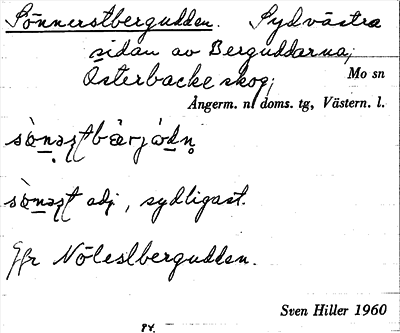 Sönnerstbergudden. Sydvästra
sidan av Berguddarna,
Österbacke skog;
Mo sn
Ångerm. n. doms. tg, Västern. l.
adj, sydligast.
Jfr Nöleslbergudden.
Sven Hiller 1960